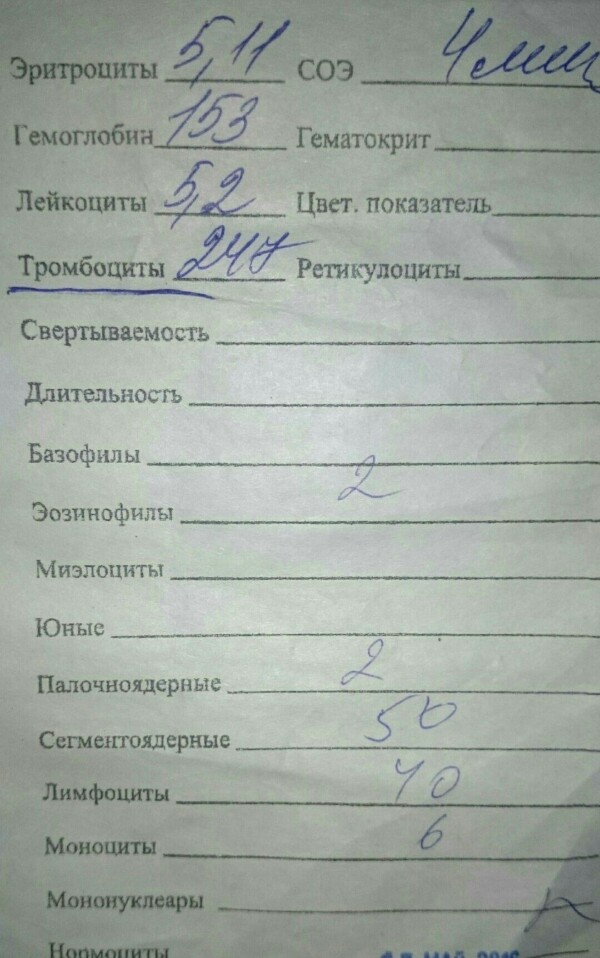 Эритроциты 5,11 СОЭ 4 мм/ч
Гемоглобин 153 Гематокрит
Лейкоциты 5,2 Цвет. показатель
Тромбоциты 247 Ретикулоциты
Свертываемость
Длительность
Базофилы
Эозинофилы 2
Миэлоциты
Юные
Палочноядерные 2
Сегментоядерные 50
Лимфоциты 40
Моноциты 6
Мононуклеары
Нормоциты